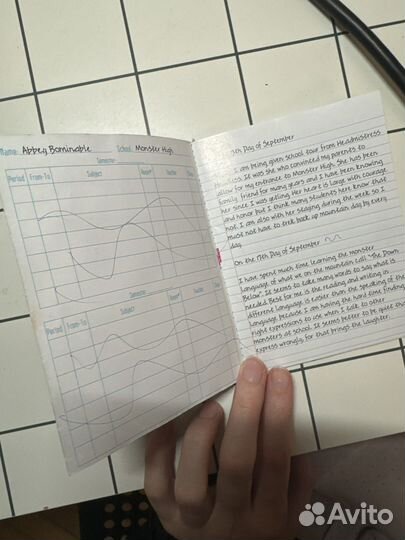 Name: Abbey Bominable School: Monster High
Semester
Period From-To Subject Room#
Semester
Period From-To Subject Room#
Day of September
I am being given school tour from Headmistress
It was she who convinced my parents to
allow for my entrance to Monster High. She has been
family friend for many years and I have been knowing
her since I was yetling. Her heart is large with courage
and honor but I think many students here know that
not. I am also with her staying during the week so I
must not have to trek back up mountain day by every
day.
On the 7th Day of September
I have spent much time learning the monster
language of what we on the mountain call "The Down
Below". It seems to take many words to say what is
needed. Best for me is the reading and writing in
different language is easier than the speaking of the
language because I am having the hard time finding
right expressions to use when I talk to other
monsters at school. It seems better to be quiet than
express wrongly, for that brings the laughter.
Avito